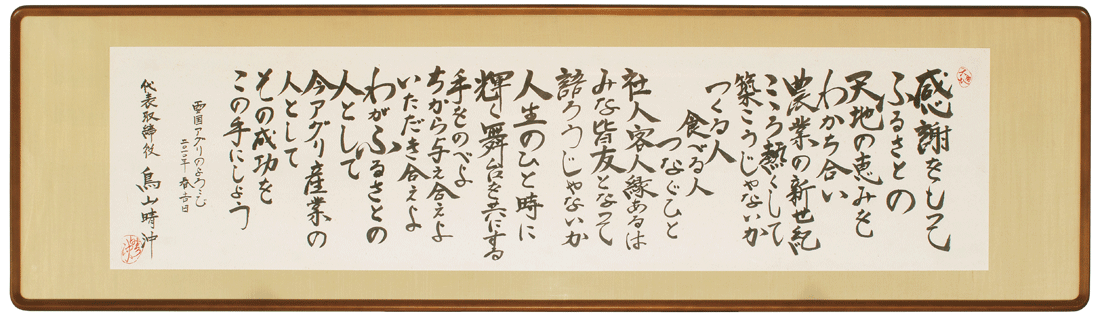 感謝をもって
ふるさとの
天地の恵みを
わかち合い
農業の新世紀
こころ熱くして
築こうじゃないか
つくる人
食べる人
つなぐひと
社人客人縁あるは
みな皆友となって
語ろうじゃないか
人生のひと時に
輝く舞台を共にする
手をのべよ
ちから与え合えよ
いただき合えよ
わがふるさとの
人として
今アグリ産業の
人として
その成功を
この手にしよう
雪国アグリのよろこび
二〇一一年 春吉日
代表取締役 鳥山晴沖